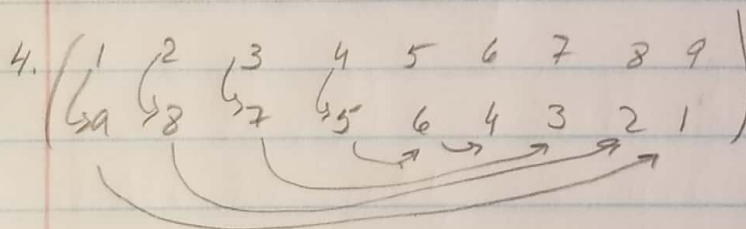 4. ( 1 2 3 4 5 6 7 8 9 )
9 8 7 5 6 4 3 2 1